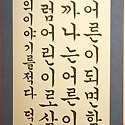 어른이되면함
까나는어른이
럼어린이로살
의이야기를적다